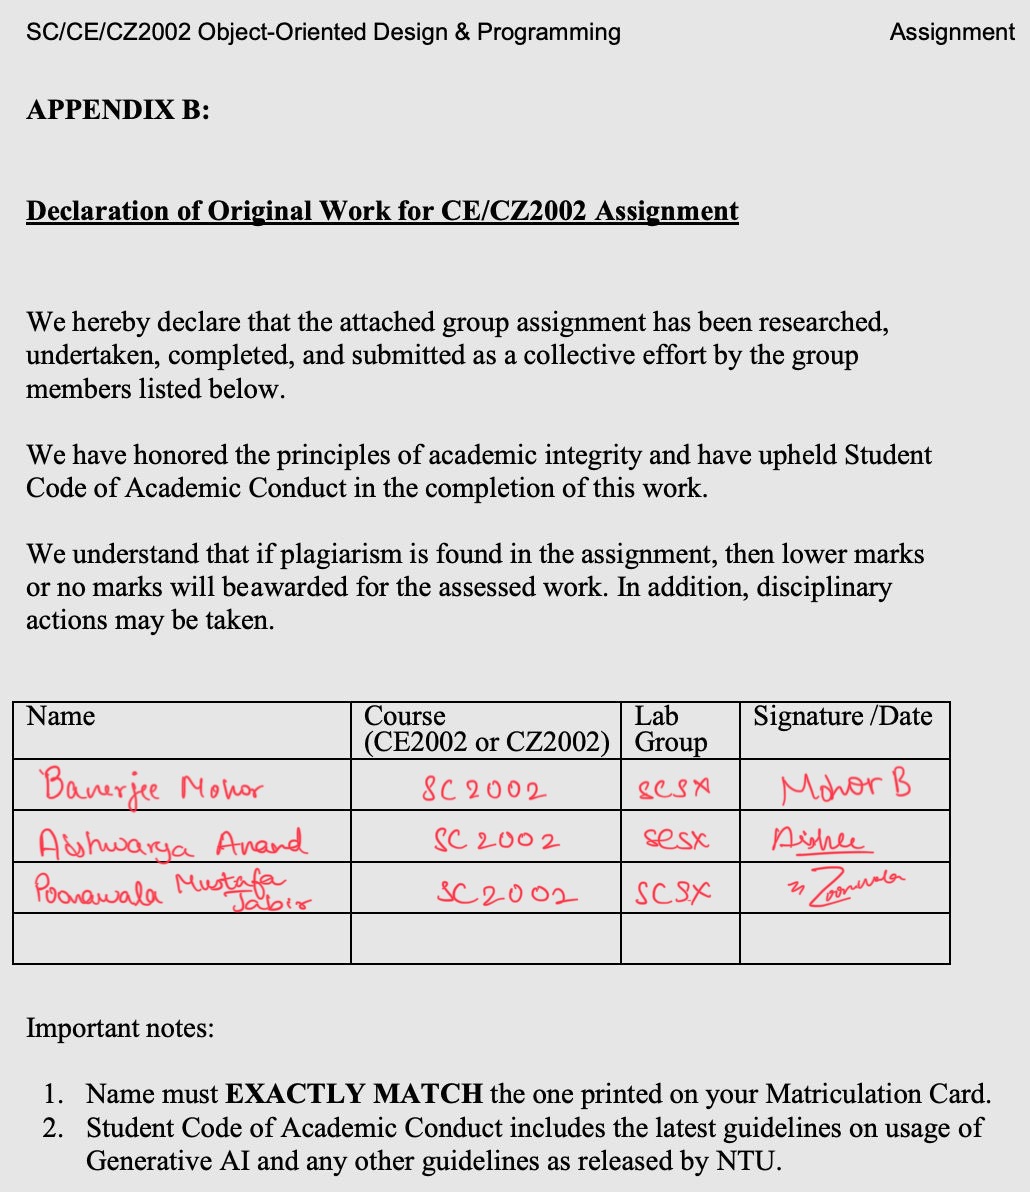 SC/CE/CZ2002 Object-Oriented Design & Programming Assignment
APPENDIX B:
Declaration of Original Work for CE/CZ2002 Assignment
We hereby declare that the attached group assignment has been researched,
undertaken, completed, and submitted as a collective effort by the group
members listed below.
We have honored the principles of academic integrity and have upheld Student
Code of Academic Conduct in the completion of this work.
We understand that if plagiarism is found in the assignment, then lower marks
or no marks will beawarded for the assessed work. In addition, disciplinary
actions may be taken.
Name Course Lab Signature /Date
(CE2002 or CZ2002) Group
Banerjee Mohor SC2002 SCSX Mohor B
Aishwarya Anand SC2002 SCSX
Poonawala Mustafa Jabir SC2002 SCSX
Important notes:
1. Name must EXACTLY MATCH the one printed on your Matriculation Card.
2. Student Code of Academic Conduct includes the latest guidelines on usage of
Generative AI and any other guidelines as released by NTU.